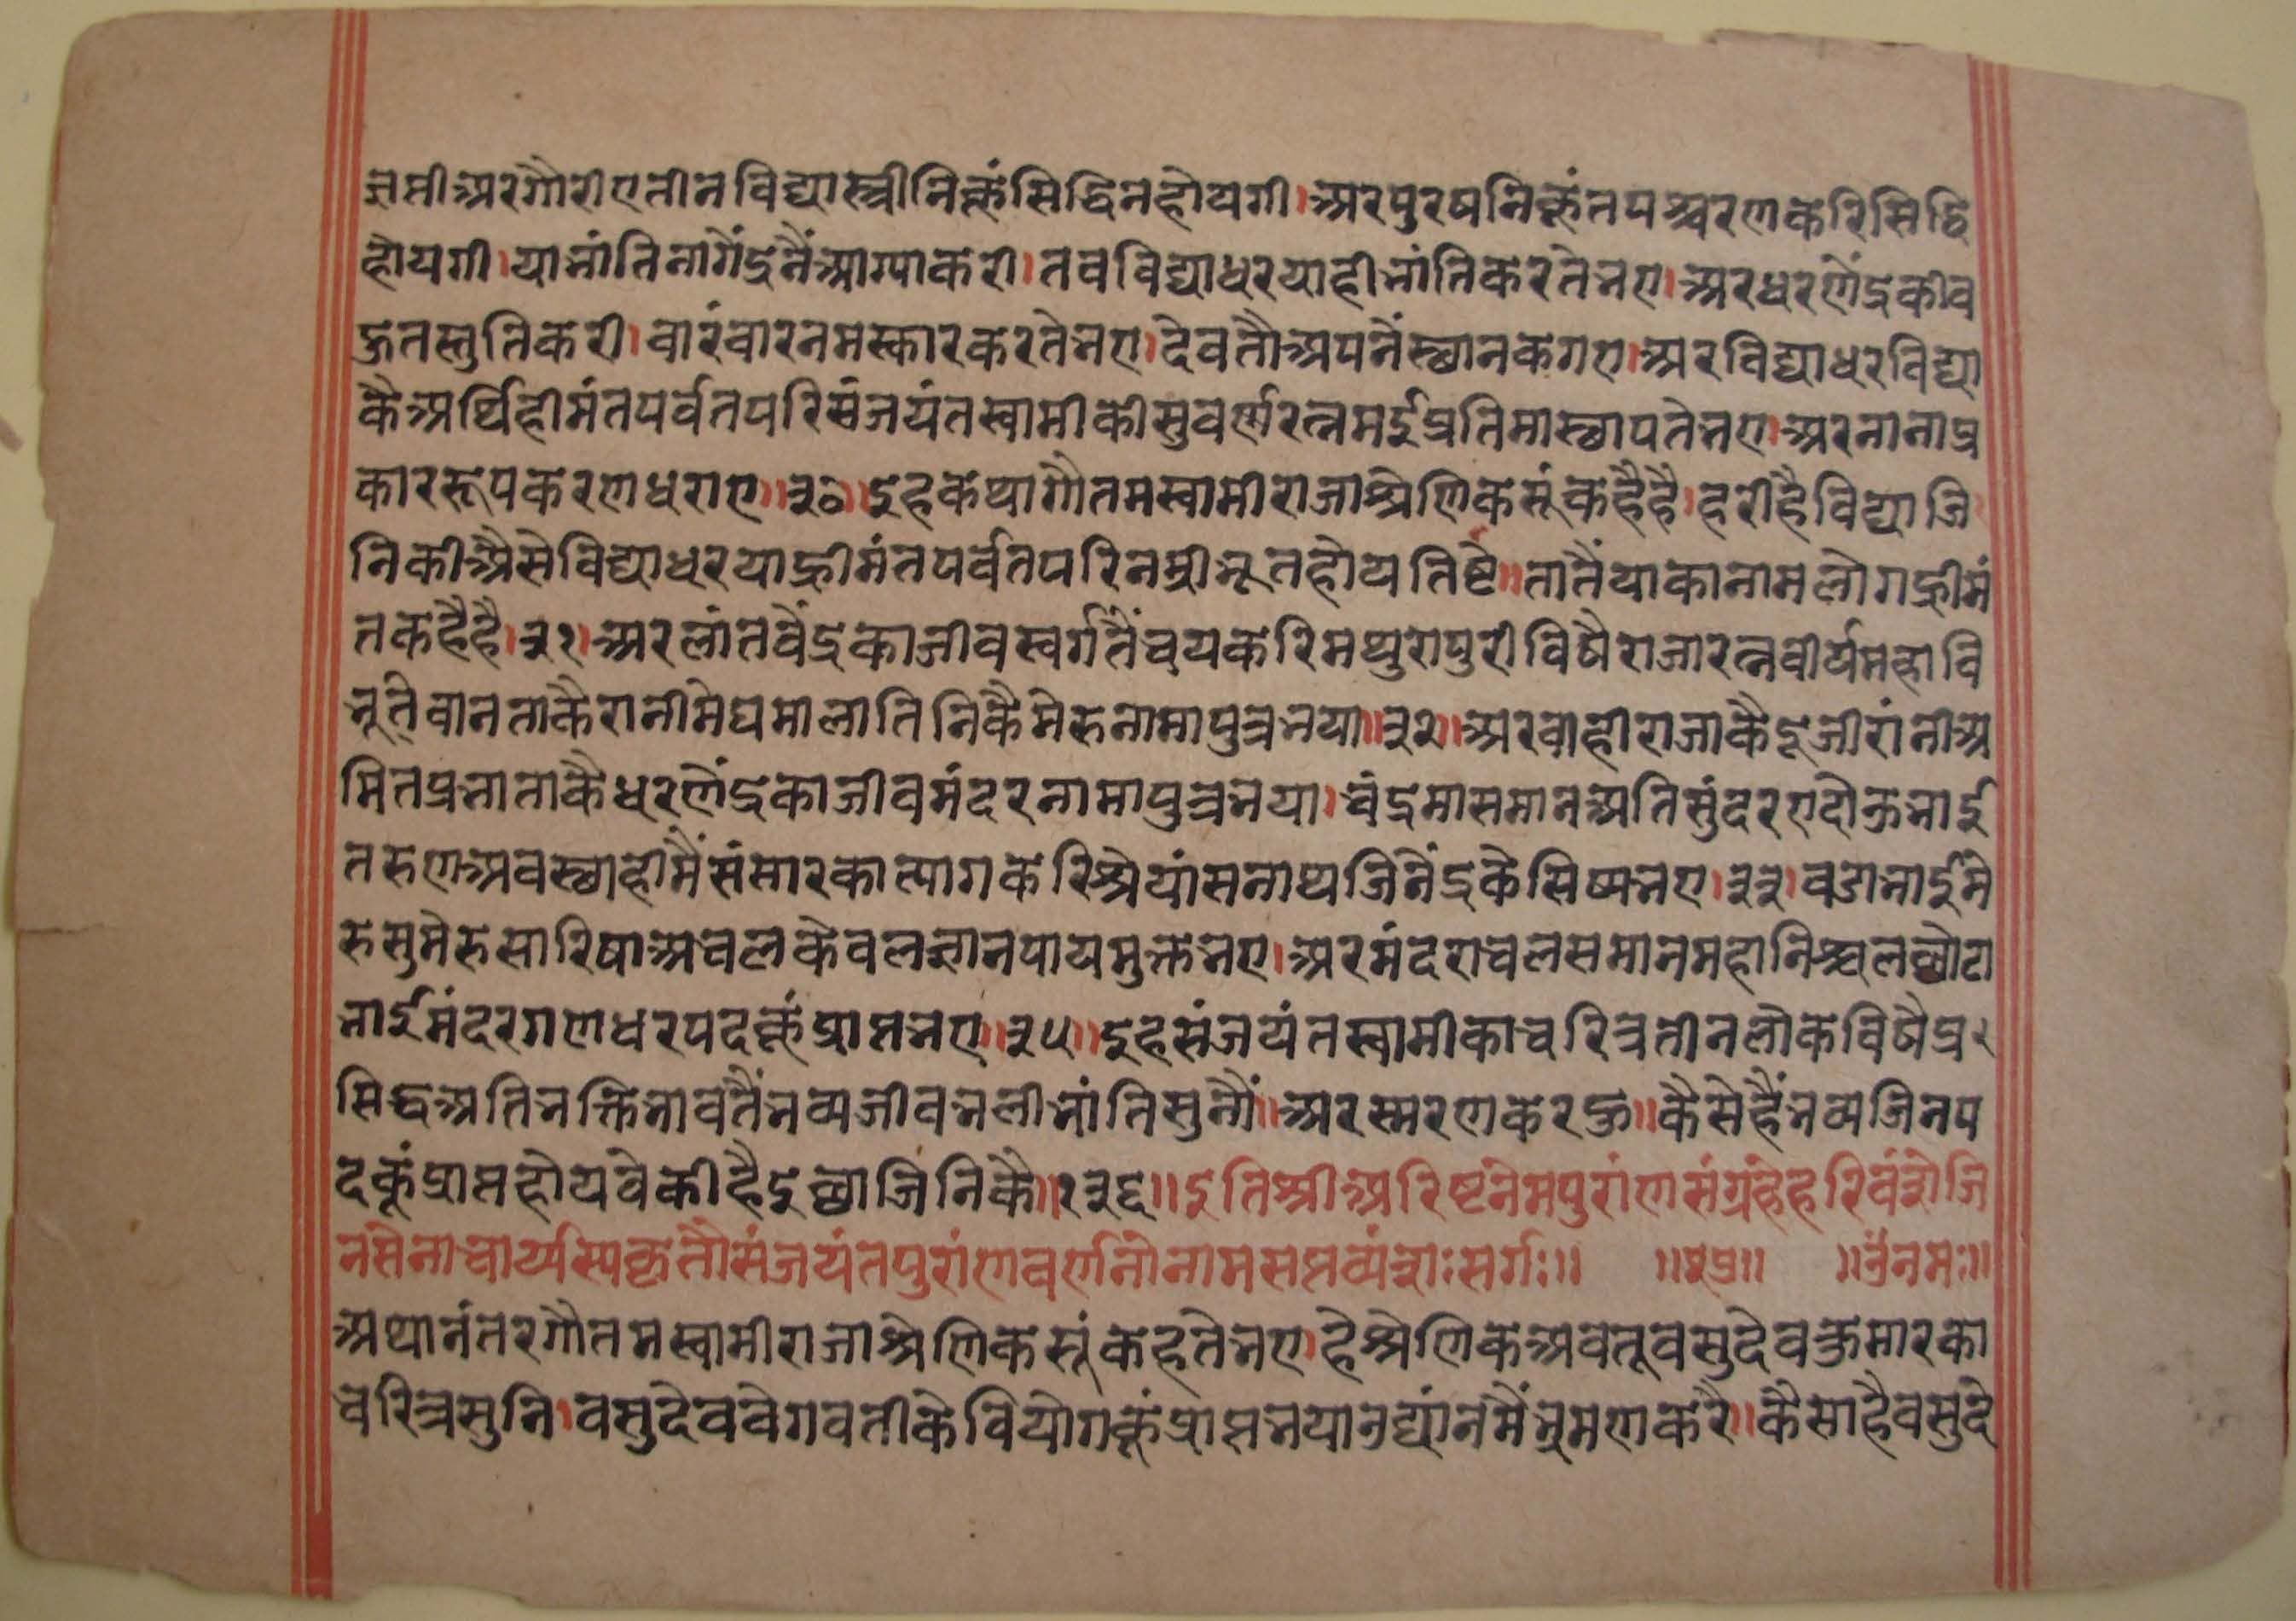 ज्ञप्तीअरगौरीएतीनविद्यास्त्रीनिकूंसिद्धिनहोयगी।अरपुरषनिकूंतपश्चरणकरिसिद्धि
होयगी।याभांतिनागेंद्रनैंआग्याकरी।तबविद्याधरयाहीभांतिकरतेभए।अरधरणेंद्रकीब
हुतस्तुतिकरी।बारंबारनमस्कारकरतेभए।देवतौअपनैंस्थानकगए।अरविद्याधरविद्या
कैअर्थिहीमंतपर्वतपरिसंजयंतस्वामीकीसुवर्णरत्नमईप्रतिमास्थापतेभए।अरनानाप्र
काररूपकरणधराए॥३०॥इहकथागौतमस्वामीराजाश्रेणिकसूंकहैहै।हरीहैविद्याजि
निकीअैसेविद्याधरयाह्रीमंतपर्वतपरिनम्रीभूतहोयतिष्टे॥तातैंयाकानामलोगह्रीमं
तकहैहै।३१।अरलांतवेंद्रकाजीवस्वर्गतैंचयकरिमथुरापुरीविषैराजारत्नवीर्यमहावि
भूतिवानताकैरानीमेघमालातिनिकैमेरुनामापुत्रभया॥३२॥अरवाहीराजाकैदूजीरांनीअ
मितप्रभाताकैधरणेंद्रकाजीवमंदरनामापुत्रभया।चंद्रमासमानअतिसुंदरएदोऊभाई
तरुणअवस्थाहीमैंसंसारकात्यागकरिश्रेयांसनाथजिनेंद्रकेसिष्यभए।३३।बडाभाईमे
रुसुमेरुसारिषाअचलकेवलज्ञानपायमुक्तभए।अरमंदराचलसमानमहानिश्चलछोटा
भाईमंदरगणधरपदकूंप्राप्तभए॥३५॥इहसंजयंतस्वामीकाचरित्रतीनलोकविषैप्र
सिद्धअतिभक्तिभावतैंभव्यजीवभलीभांतिसुनौं॥अरस्मरणकरहु॥कैसेहैंभव्यजिनप
दकूंप्राप्तहोयवेकीहैइछाजिनिकै॥१३६॥इतिश्रीअरिष्टनेमपुरांणसंग्रंहेहरिवंशेजि
नसेनाचार्य्यस्यकृतौसंजयंतपुरांणवर्णनोनामसप्तव्यंशः सर्गः॥ ॥नमः॥
अथानंतरगौतमस्वामीराजाश्रेणिकसूंकहतेभए।हेश्रेणिकअबतूवसुदेवकुमारका
चरित्रसुनि।वसुदेववेगवतीकेवियोगकूंप्राप्तभयाउद्यांनमैंभ्रमणकरै॥कैसाहैवसुदे